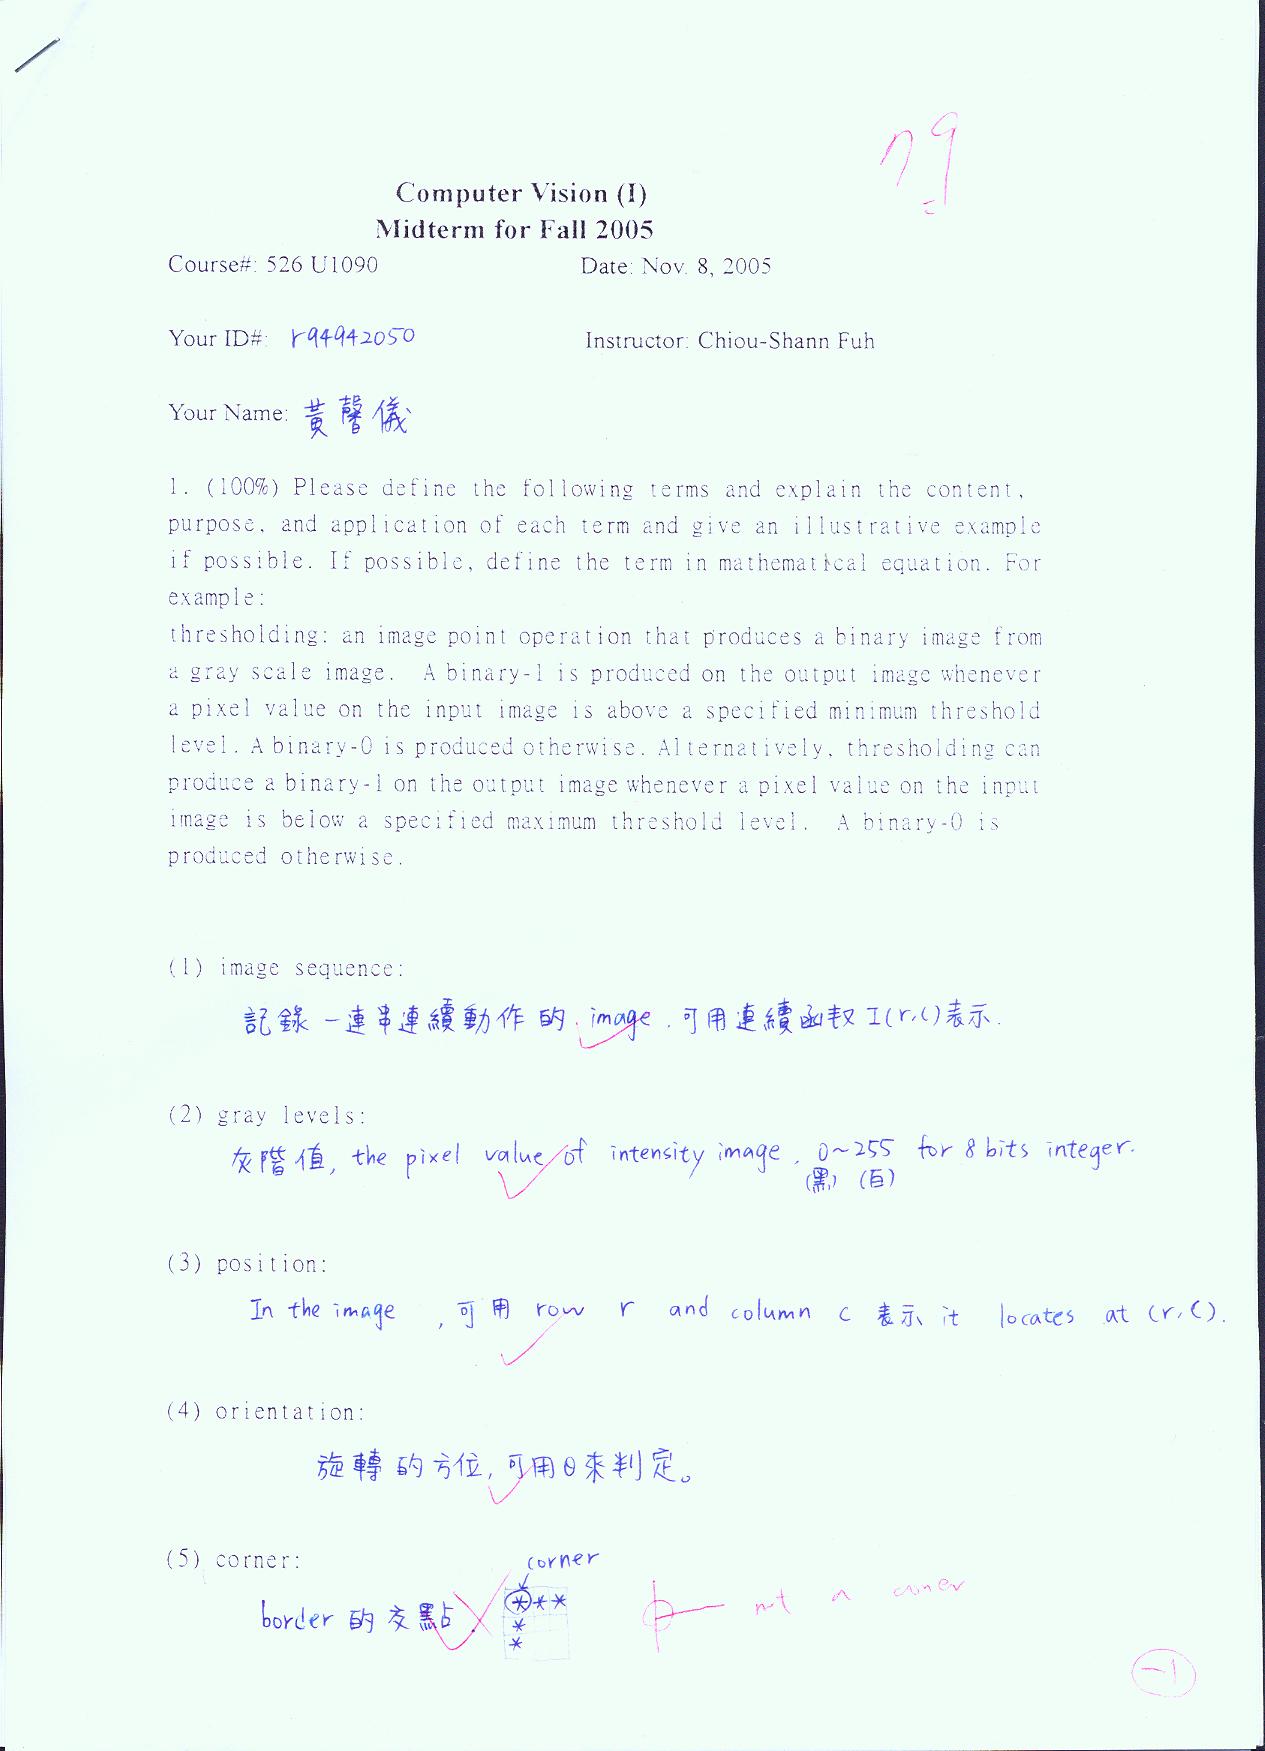 79
Computer Vision (I)
Midterm for Fall 2005
Course#: 526 U1090 Date: Nov. 8, 2005
Your ID#: r94942050 Instructor: Chiou-Shann Fuh
Your Name: 黃馨儀
1. (100%) Please define the following terms and explain the content,
purpose, and application of each term and give an illustrative example
if possible. If possible, define the term in mathematical equation. For
example:
thresholding: an image point operation that produces a binary image from
a gray scale image. A binary-1 is produced on the output image whenever
a pixel value on the input image is above a specified minimum threshold
level. A binary-0 is produced otherwise. Alternatively, thresholding can
produce a binary-1 on the output image whenever a pixel value on the input
image is below a specified maximum threshold level. A binary-0 is
produced otherwise.
(1) image sequence:
記錄一連串連續動作的 image. 可用連續函数 I(r,c)表示.
(2) gray levels:
灰階值, the pixel value of intensity image. 0~255 for 8 bits integer.
(黑) (白)
(3) position:
In the image , 可用 row r and column c 表示 it locates at (r,c).
(4) orientation:
旋轉的方位, 可用θ來判定。
(5) corner:
corner
border 的交點. ***
*
*
not a corner
-1